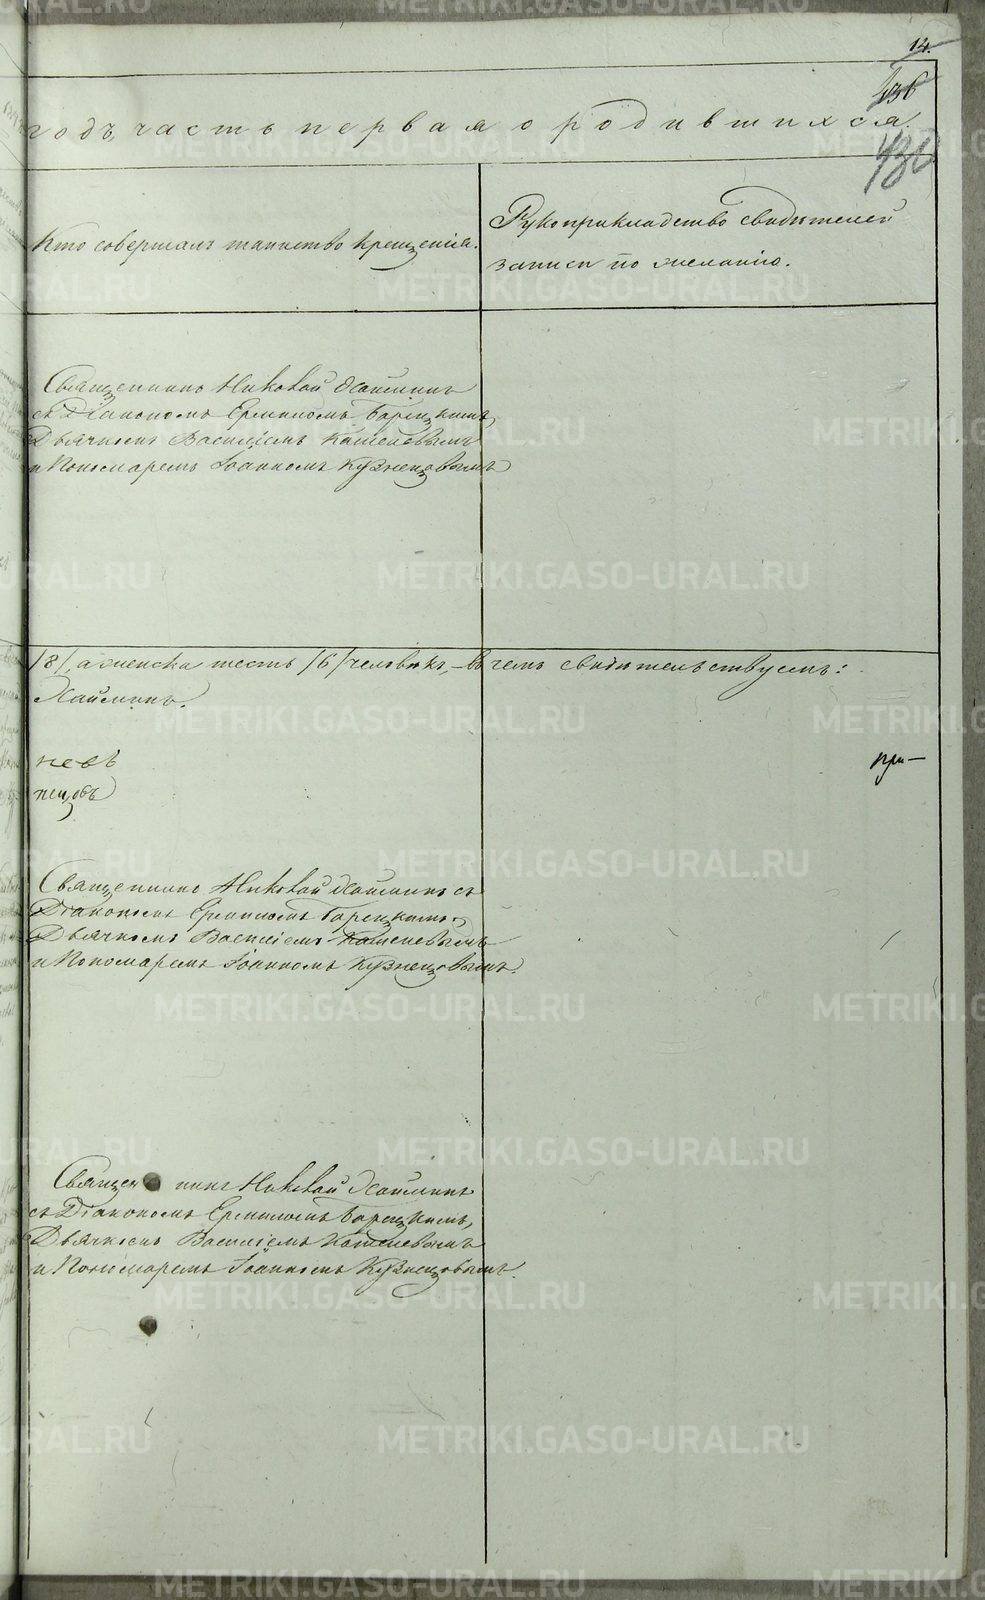 14.
136
430
годъ, часть первая о родившихся.
Кто совершалъ таинство крещенія.
Рукоприкладство свидѣтелей
записи по желанію.
Священникъ Николай Хаймин
съ Діакономъ Ермиломъ
Дьячкомъ Василіемъ Кошелевымъ
и Пономаремъ Іоанномъ Кузнецовымъ
/8/, а женска шесть /6/ человѣкъ, – въ чемъ свидѣтельствуемъ:
Хайминъ.
невъ
нецовъ
при–
Священникъ Николай Хайминъ съ
Діакономъ Ермиломъ
Дьячкомъ Василіемъ Кошелевымъ
и Пономаремъ Іоанномъ Кузнецовымъ.
Священникъ Николай Хайминъ
съ Діакономъ Ермиломъ
Дьячкомъ Василіемъ Кошелевымъ
и Пономаремъ Іоанномъ Кузнецовымъ.
METRIKI.GASO-URAL.RU